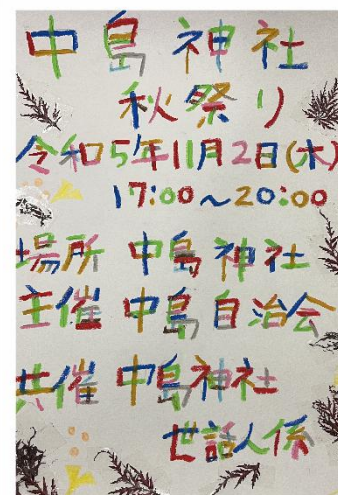 中島神社
秋祭り
令和5年11月2日(木)
17:00~20:00
場所 中島神社
主催 中島自治会
共催 中島神社
世話人係